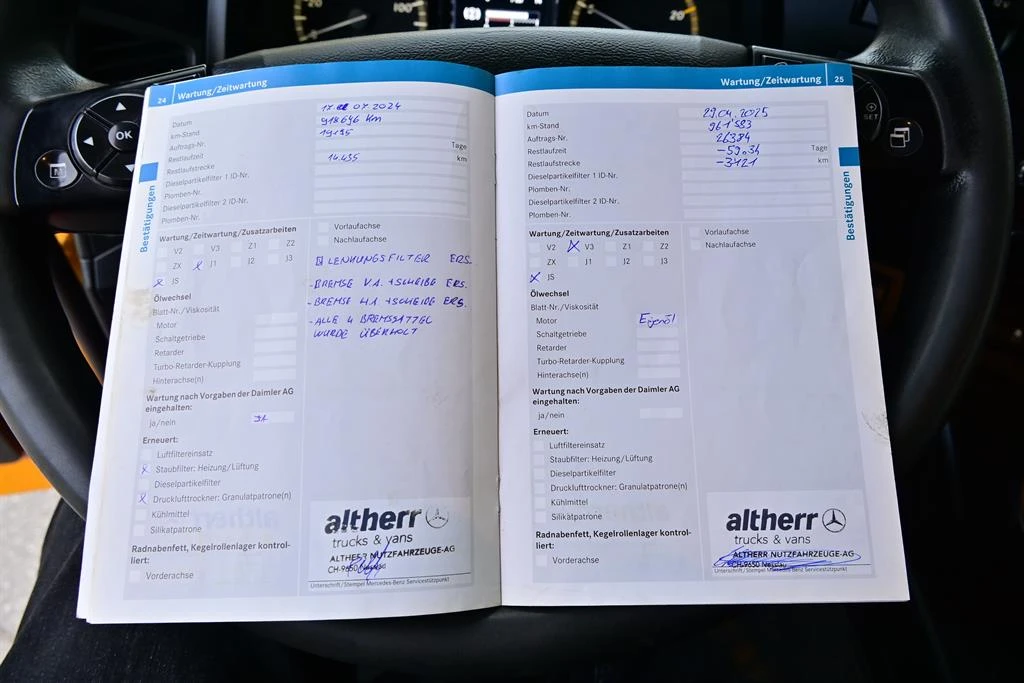 20
100
20
OK
SET
24 Wartung/Zeitwartung
Datum 17. 07.2024
km-Stand 918646 Km
Auftrags-Nr. 19195
Restlaufzeit Tage
Restlaufstrecke 14.435 km
Dieselpartikelfilter 1 ID-Nr.
Plomben-Nr.
Dieselpartikelfilter 2 ID-Nr.
Plomben-Nr.
Bestätigungen
Wartung/Zeitwartung/Zusatzarbeiten
V2 V3 Z1 Z2
ZX X J1 J2 J3
X JS
Vorlaufachse
Nachlaufachse
LENKUNGSFILTER ERS.
- BREMSE V.A. + SCHEIBE ERS.
- BREMSE H.A. + SCHEIBE ERS.
- ALLE 4 BREMSSATTEL
WURDE ÜBERHOLT
Ölwechsel
Blatt-Nr./Viskosität
Motor
Schaltgetriebe
Retarder
Turbo-Retarder-Kupplung
Hinterachse(n)
Wartung nach Vorgaben der Daimler AG
eingehalten:
ja/nein JA
Erneuert:
Luftfiltereinsatz
X Staubfilter: Heizung/Lüftung
Dieselpartikelfilter
X Drucklufttrockner: Granulatpatrone(n)
Kühlmittel
Silikatpatrone
Radnabenfett, Kegelrollenlager kontrol-
liert:
Vorderachse
altherr
trucks & vans
ALTHERR NUTZFAHRZEUGE-AG
CH-9650 Nesslau
Unterschrift/Stempel Mercedes-Benz Servicestützpunkt
Wartung/Zeitwartung 25
Datum 29.04.2025
km-Stand 961'583
Auftrags-Nr. 26374
Restlaufzeit Tage
Restlaufstrecke -3121 km
Dieselpartikelfilter 1 ID-Nr.
Plomben-Nr.
Dieselpartikelfilter 2 ID-Nr.
Plomben-Nr.
Bestätigungen
Wartung/Zeitwartung/Zusatzarbeiten
V2 X V3 Z1 Z2
ZX J1 J2 J3
X JS
Vorlaufachse
Nachlaufachse
Ölwechsel
Blatt-Nr./Viskosität
Motor Eigenöl
Schaltgetriebe
Retarder
Turbo-Retarder-Kupplung
Hinterachse(n)
Wartung nach Vorgaben der Daimler AG
eingehalten:
ja/nein
Erneuert:
Luftfiltereinsatz
Staubfilter: Heizung/Lüftung
Dieselpartikelfilter
Drucklufttrockner: Granulatpatrone(n)
Kühlmittel
Silikatpatrone
Radnabenfett, Kegelrollenlager kontrol-
liert:
Vorderachse
altherr
trucks & vans
ALTHERR NUTZFAHRZEUGE-AG
CH-9650 Nesslau
Unterschrift/Stempel Mercedes-Benz Servicestützpunkt